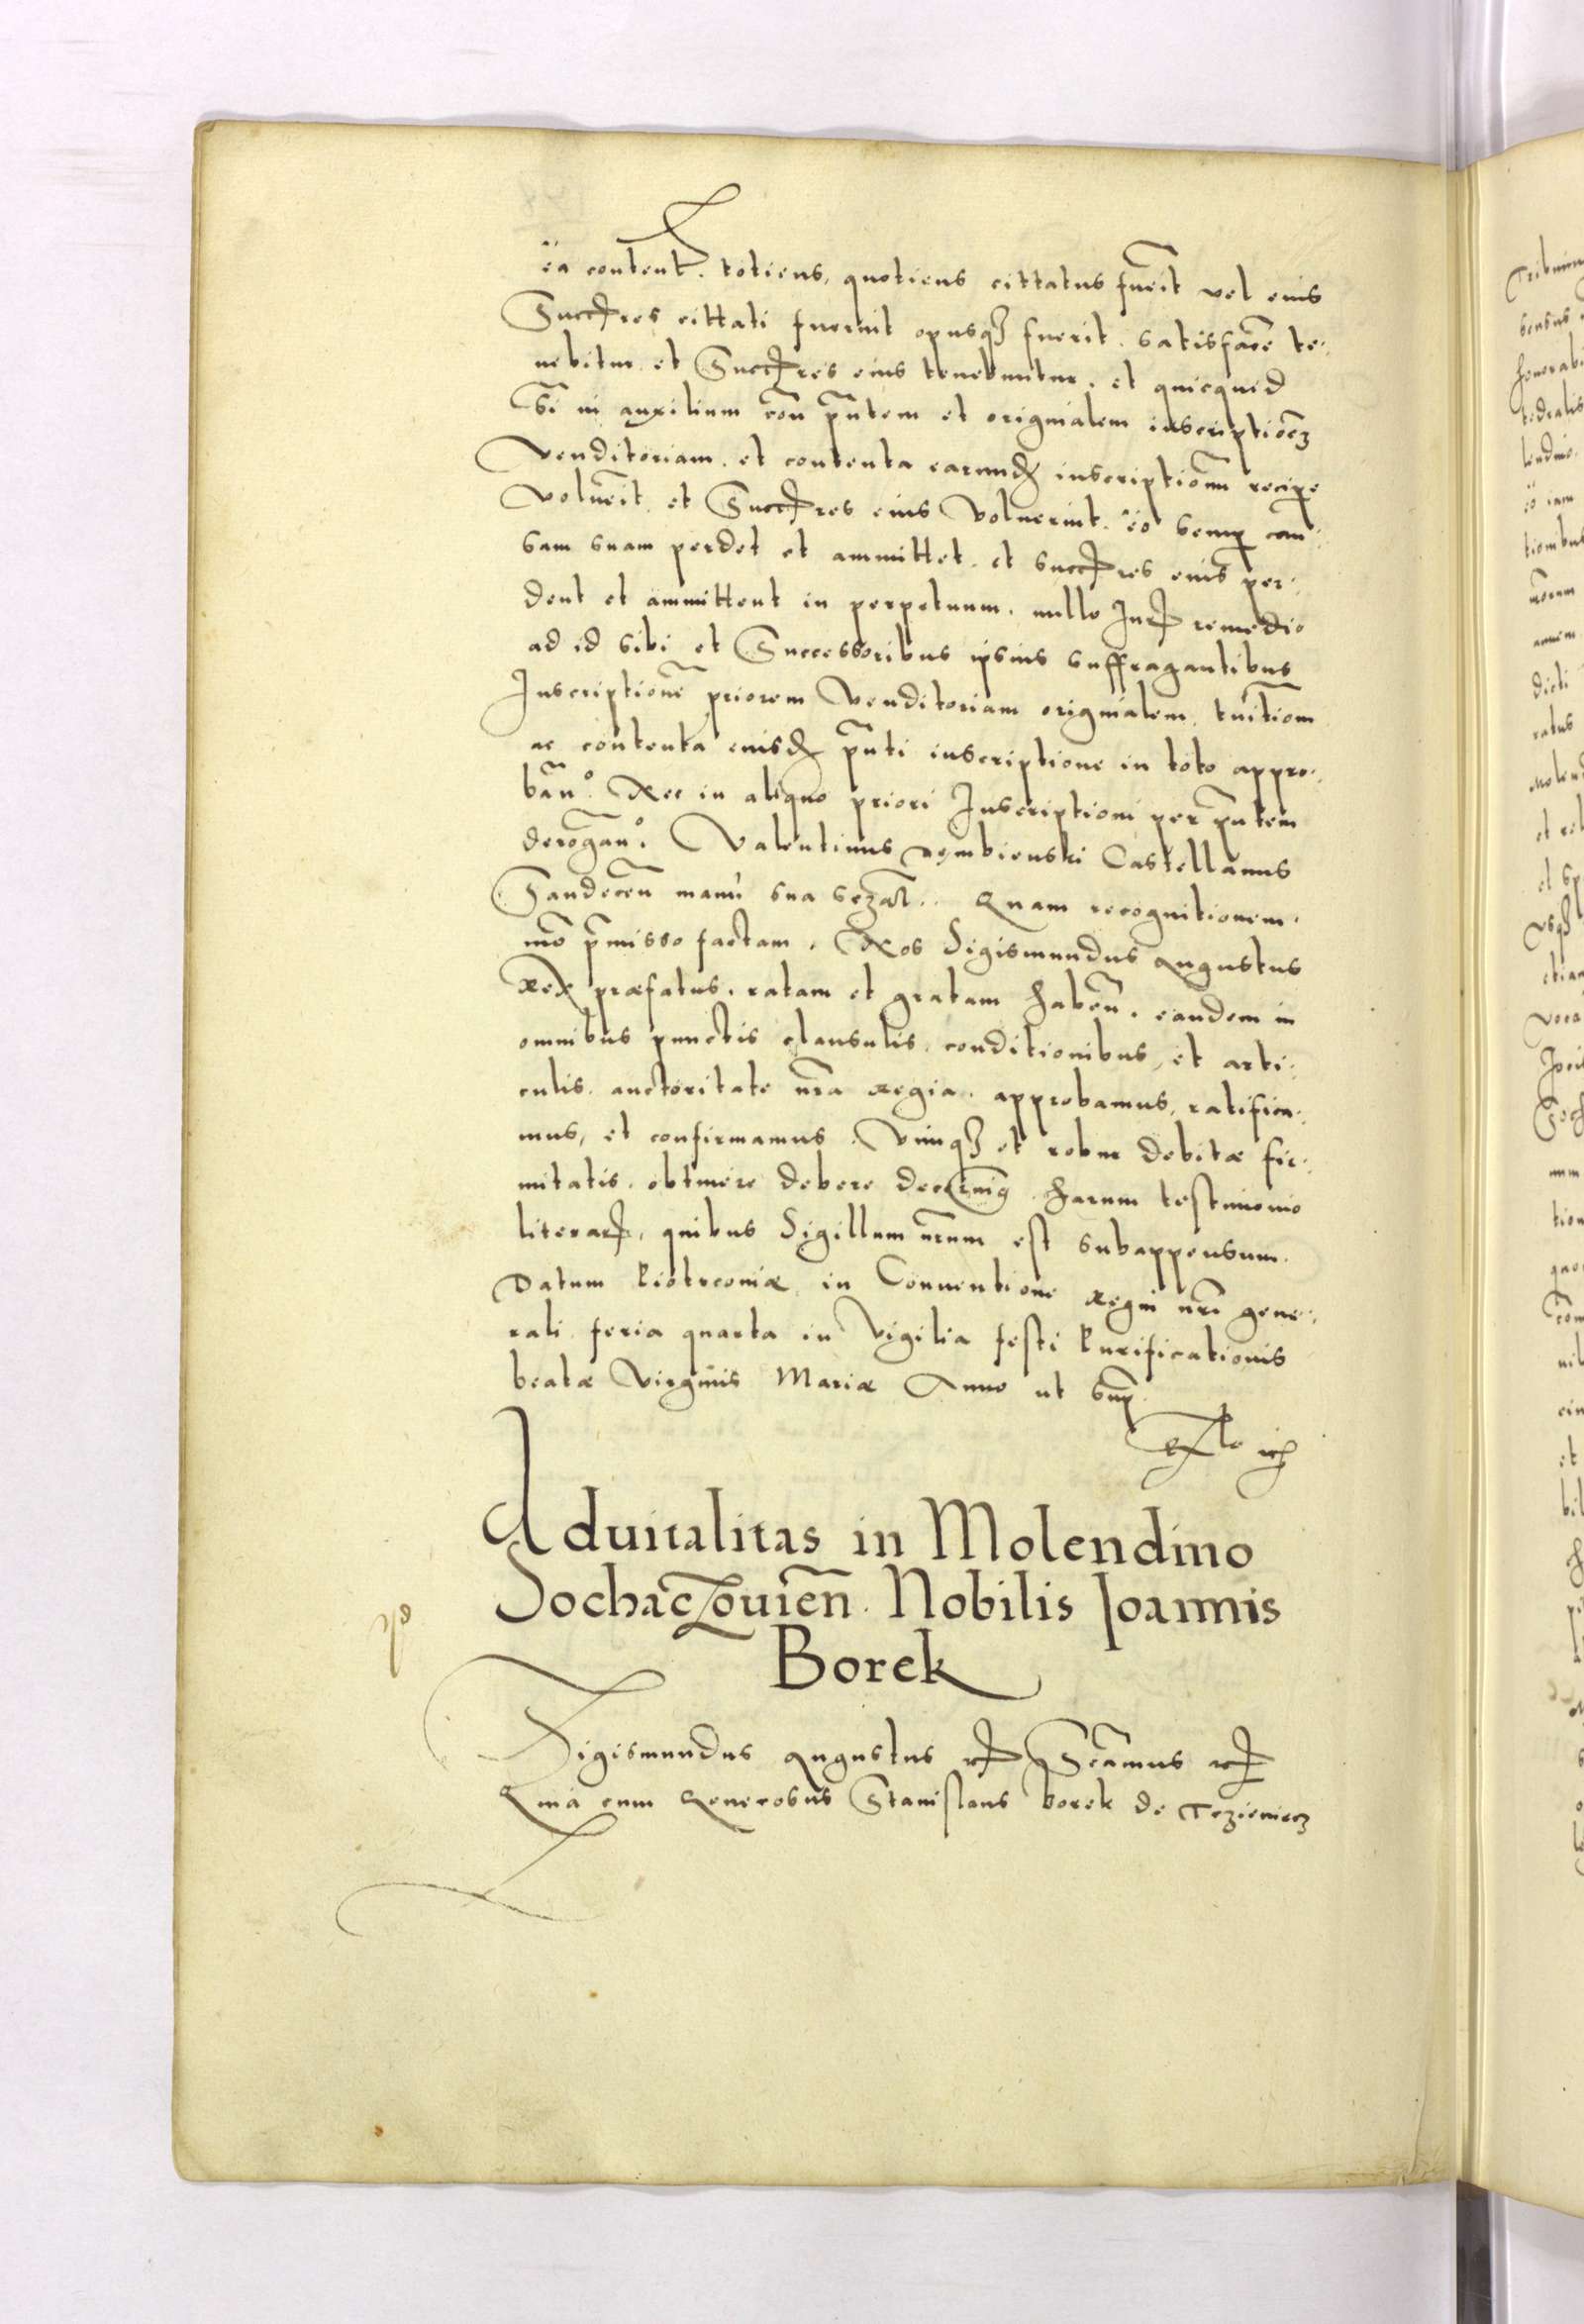 ea content. totiens, quotiens cittatus fuerit vel eius
Succres cittati fuerint opusq3 fuerit. satisfacere te:
nebitur et Succres eius tenebuntur. et quicquid
Si in auxilium con pñtem et originalem inscriptionem
venditoriam. et contenta earund inscriptionum recipe
voluerit. et Succres eius voluerint. eo semp cau:
sam suam perdet et ammittet. et succres eius per:
dent et ammittent in perpetuum. nullo Jur remedio
ad id sibi et Successoribus ipsius suffragantibus
Inscriptione priorem venditoriam originalem,
ac contenta eiusd pñti inscriptione in toto appro:
ban. Nec in aliquo priori Inscriptioni per pñtem
derogan. Valentinus Dembienski Castellanus
Sandecen manu sua. Quam recognitionem.
mo pmisso factam. Nos Sigismundus Augustus
Rex præfatus. ratam et gratam haben. eandem in
omnibus punctis clausulis. conditionibus, et arti:
culis. auctoritate nra Regia. approbamus, ratifica:
mus, et confirmamus. Vimq3 et robur debitæ fir:
mitatis. obtinere debere decernim9. harum testimonio
literar, quibus Sigillum nrum est subappensum.
Datum Piotrcoviæ in Conventione Regni nri gene:
rali feria quarta in Vigilia festi Purificationis
beatæ Virginis Mariæ Anno ut sup.
Advitalitas in Molendino
Sochaczovien. Nobilis Joannis
Borek
Sigismundus Augustus etc Significamus etc
Quia cum Generosus Stanislaus Borek de Trzieniecz